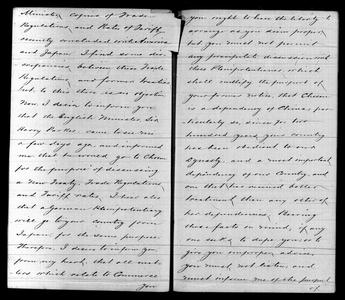 Minister, Copies of Trade
Regulations, and Rates of Tariff
recently concluded America
and Japan. I find some dis-
crepancies between these Trade
Regulations and former treaties
but to this there is no objection
Now I desire to inform you
that the English Minister, Sir
Harry Parkes came to see me
a few days ago, and informed
me that he would go to Chosen
for the purpose of discussing
a New Treaty, Trade Regulations
and Tariff rates. I hear also
that a German Plenipotentiary
will go to your country from
Japan for the same purpose.
Therefore I desire to inform you
from my heart, that all mat-
ters which relate to Commerce
you
you ought to have the liberty to
arrange as you deem proper,
but you must not permit
any precipitate discussion with
these Plenipotentiaries, which
shall nullify the purport of
your former notes, that Chosen
is a dependency of China, par-
ticularly so, since for two
hundred years your country
has been obedient to our
Dynasty, and a most important
dependency of our Country, and
one that has received better
treatment than any other of
her dependencies. Having
these facts in mind, if any
one seeks to dupe you or to
give you improper advice,
you must not listen, and
must inform me of the purport
of